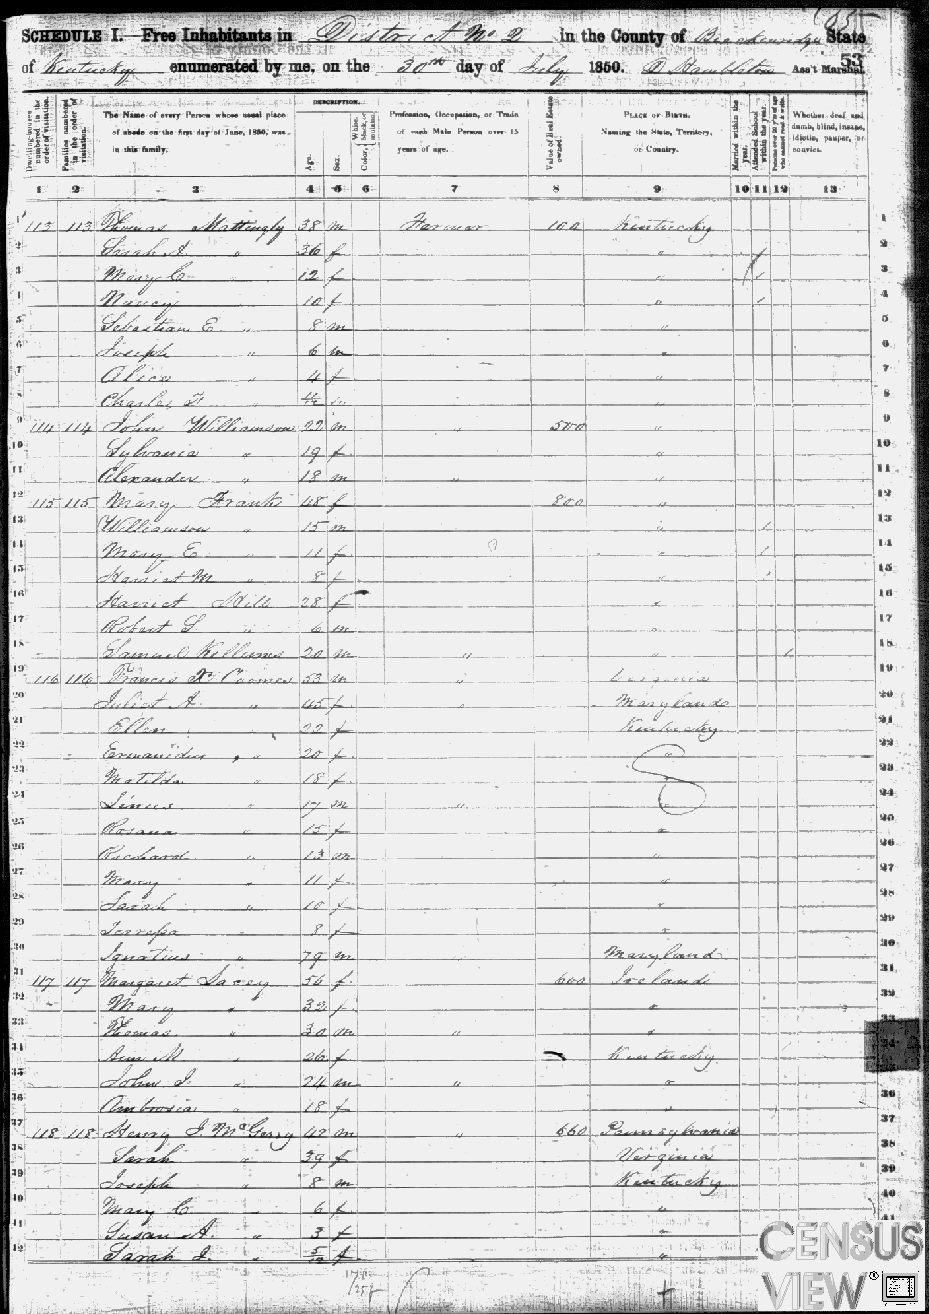 SCHEDULE I.—Free Inhabitants in District No. 2 in the County of Breckenridge State
of Kentucky enumerated by me, on the 30th day of July 1850. Ass't Marshal
53
DESCRIPTION.
Dwelling-houses numbered in the order of visitation. Families numbered in the order of visitation. The Name of every Person whose usual place of abode on the first day of June, 1850, was in this family. Age. Sex. Color, White, black, or mulatto. Profession, Occupation, or Trade of each Male Person over 15 years of age. Value of Real Estate owned. PLACE OF BIRTH. Naming the State, Territory, or Country. Married within the year. Attended School within the year. Whether deaf and dumb, blind, insane, idiotic, pauper, or convict.
1 2 3 4 5 6 7 8 9 10 11 12 13
1 113 113 Thomas Mattingly 38 m Farmer 100 Kentucky 1
2 Sarah A. " 36 f " 2
3 Mary C " 12 f " / 3
4 Nancy " 10 f " / 4
5 Sebastian E " 8 m " 5
6 Joseph " 6 m " 6
7 Alice " 4 f " 7
8 Charles " " 8
9 114 114 John Williamson 22 m " 500 " 9
10 Sylvania " 19 f 10
11 Alexander " 18 m " " 11
12 115 115 Mary Franks 48 f 800 " 12
13 Williamson " 15 m " / 13
14 Mary E " 11 f " / 14
15 Harriet M " 8 f " / 15
16 Harriet 28 f " 16
17 Robert S " 6 m " 17
18 Samuel Kellums 20 m " " / 18
19 116 116 Francis X Coomes 53 m " Virginia 19
20 Juliet A. " 45 f Maryland 20
21 Ellen " 22 f Kentucky 21
22 " 20 f " 22
23 Matilda " 18 f 23
24 Linus " 17 m " 24
25 Rosana " 15 f " 25
26 Richard " 13 m " 26
27 Mary " 11 f " 27
28 Sarah " 10 f " 28
29 " 8 f " 29
30 Ignatius " 79 m Maryland 30
31 117 117 Margaret 56 f 600 Ireland 31
32 Mary " 32 f " 32
33 Thomas " 30 m " " 33
34 Ann M " 26 f Kentucky 34
35 John " 24 m " " 35
36 Ambrosia " 18 f " 36
37 118 118 Henry J. McGerry 42 m " 660 Pennsylvania 37
38 Sarah " 39 f Virginia 38
39 Joseph " 8 m Kentucky 39
40 Mary C " 6 f " 40
41 Susan A. " 3 f " 41
42 Sarah J " 5/12 f "
CENSUS
VIEW®